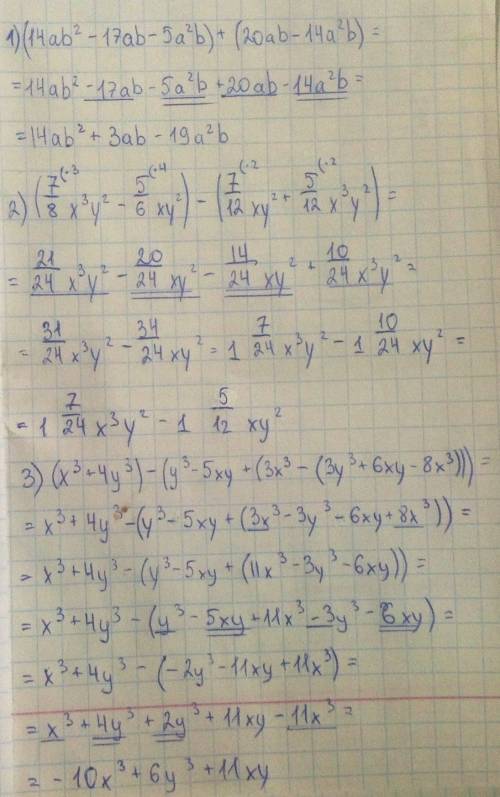 1) (14ab² - 17ab - 5a²b) + (20ab - 14a²b) =
= 14ab² - 17ab - 5a²b + 20ab - 14a²b =
= 14ab² + 3ab - 19a²b
2) (7/8 (·3 x³y² - 5/6 (·4 xy²) - (7/12 (·2 xy² + 5/12 (·2 x³y²) =
= 21/24 x³y² - 20/24 xy² - 14/24 xy² + 10/24 x³y² =
= 31/24 x³y² - 34/24 xy² = 1 7/24 x³y² - 1 10/24 xy² =
= 1 7/24 x³y² - 1 5/12 xy²
3) (x³ + 4y³) - (y³ - 5xy + (3x³ - (3y³ + 6xy - 8x³))) =
= x³ + 4y³ - (y³ - 5xy + (3x³ - 3y³ - 6xy + 8x³)) =
= x³ + 4y³ - (y³ - 5xy + (11x³ - 3y³ - 6xy)) =
= x³ + 4y³ - (y³ - 5xy + 11x³ - 3y³ - 6xy) =
= x³ + 4y³ - (-2y³ - 11xy + 11x³) =
= x³ + 4y³ + 2y³ + 11xy - 11x³ =
= - 10x³ + 6y³ + 11xy